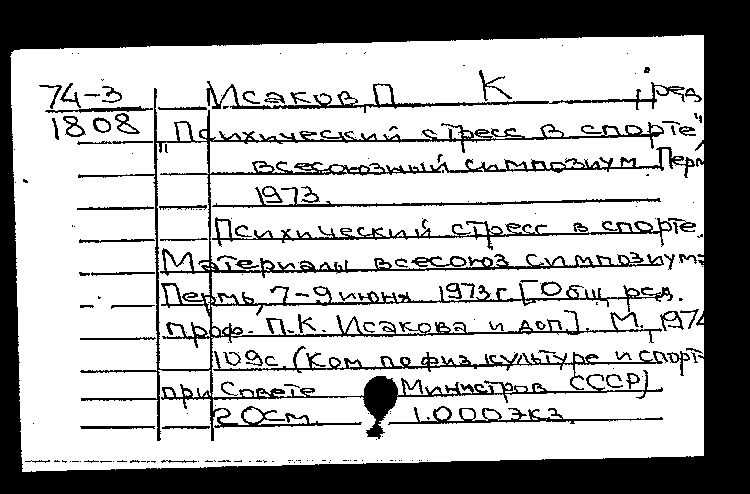 74-3 Исаков, П К , ред
1808 "Психический стресс в спорте",
всесоюзный симпозиум. Перм
1973.
Психический стресс в спорте.
Материалы всесоюз симпозиума
Пермь, 7-9 июня 1973 г. [Общ. ред.
проф. П.К. Исакова и доп]. М., 1974
109 с. (Ком по физ. культуре и спорт
при Совете Министров СССР)
20 см. 1.000 экз.